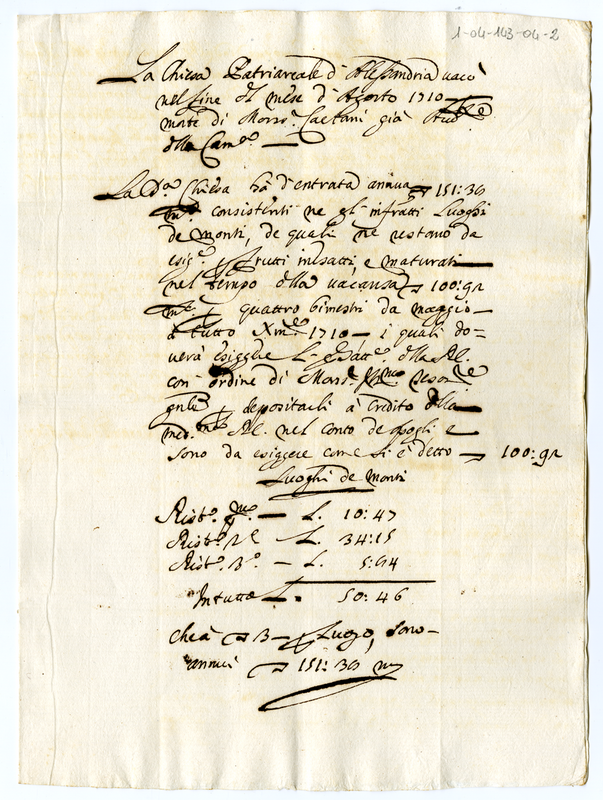 1-04-143-04-2
La Chiesa Patriarcale d'Alessandria vacò
nel fine del mese d'Agosto 1710
morte di Monsr. Caetani già Aud.re
della Cam.a
La d.a Chiesa hà d'entrata annua 151:38
m.ta consistenti ne gl'infratti Luoghi
de monti, de quali ne restano da
esig.e frutti inesatti, e maturati
nel tempo della vacanza 100:92
m.ta quattro bimestri da maggio
à tutto Xm.e 1710 - i quali do=
verà esiggere l' Esatt.e della
con ordine di Monsr. Tesor.re
gnle depositarli à credito della
med.ma nel conto de spogli e
sono da esiggere come si è detto 100:92
Luoghi de monti
Rist.o P.mo - L. 10:47
Rist.o 2.o L. 34:15
Rist.o 3.o - L. 5:84
In tutto L. 50:46
che à 3 - Luogo, sono
annui 151:38 m